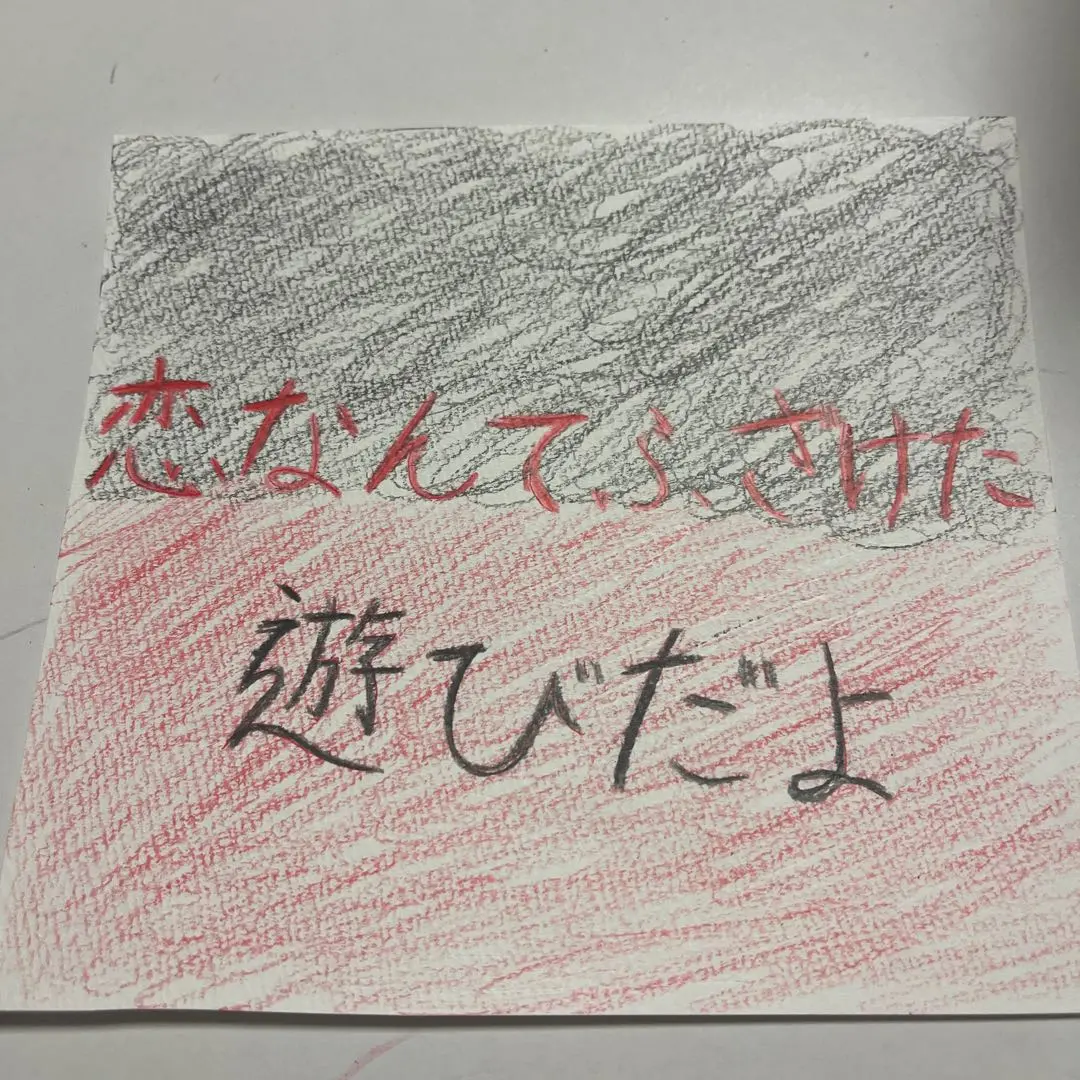 恋なんてふざけた
遊びだよ